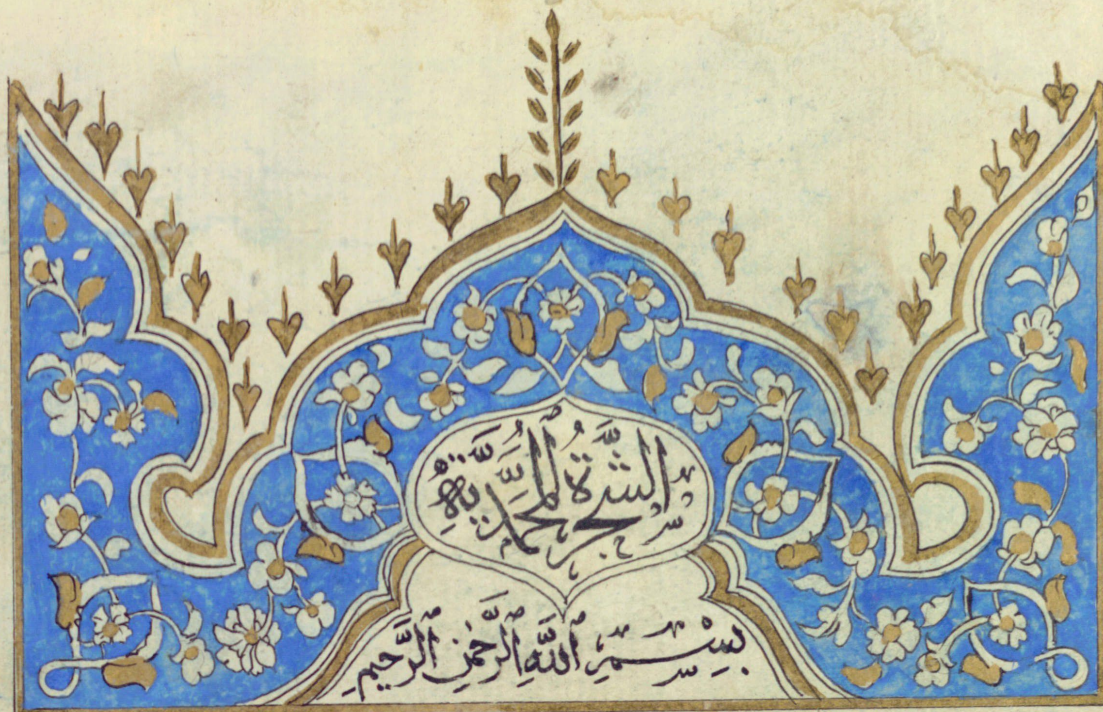 الشَّجَرَةُ الْمُحَمَّدِيَّةُ
بِسْمِ ٱللَّهِ ٱلرَّحْمَٰنِ ٱلرَّحِيمِ